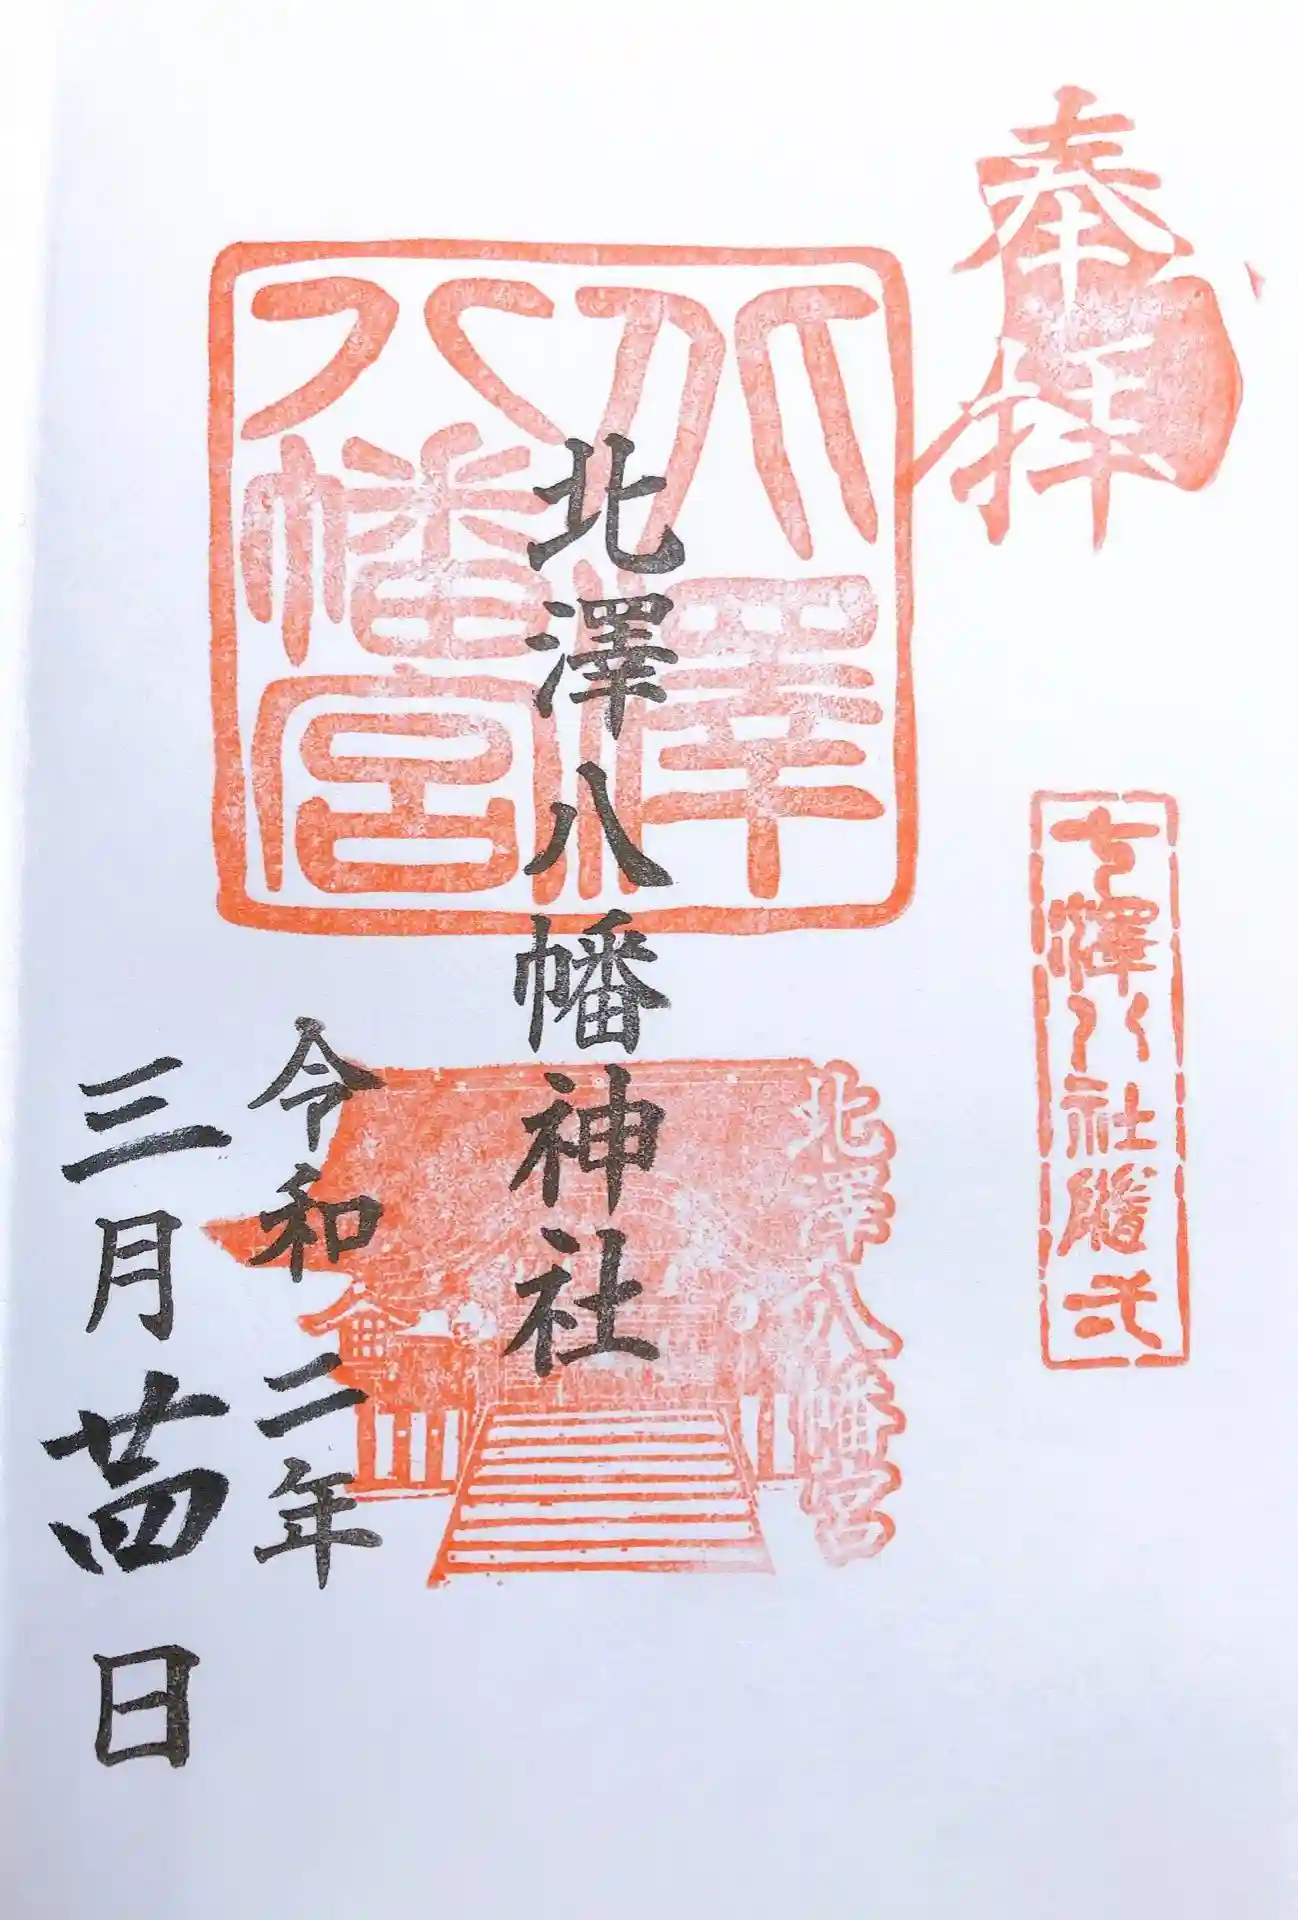 奉拝
七澤八社隨弌
北澤八幡宮
北澤八幡宮
北澤八幡神社
令和二年
三月廿四日